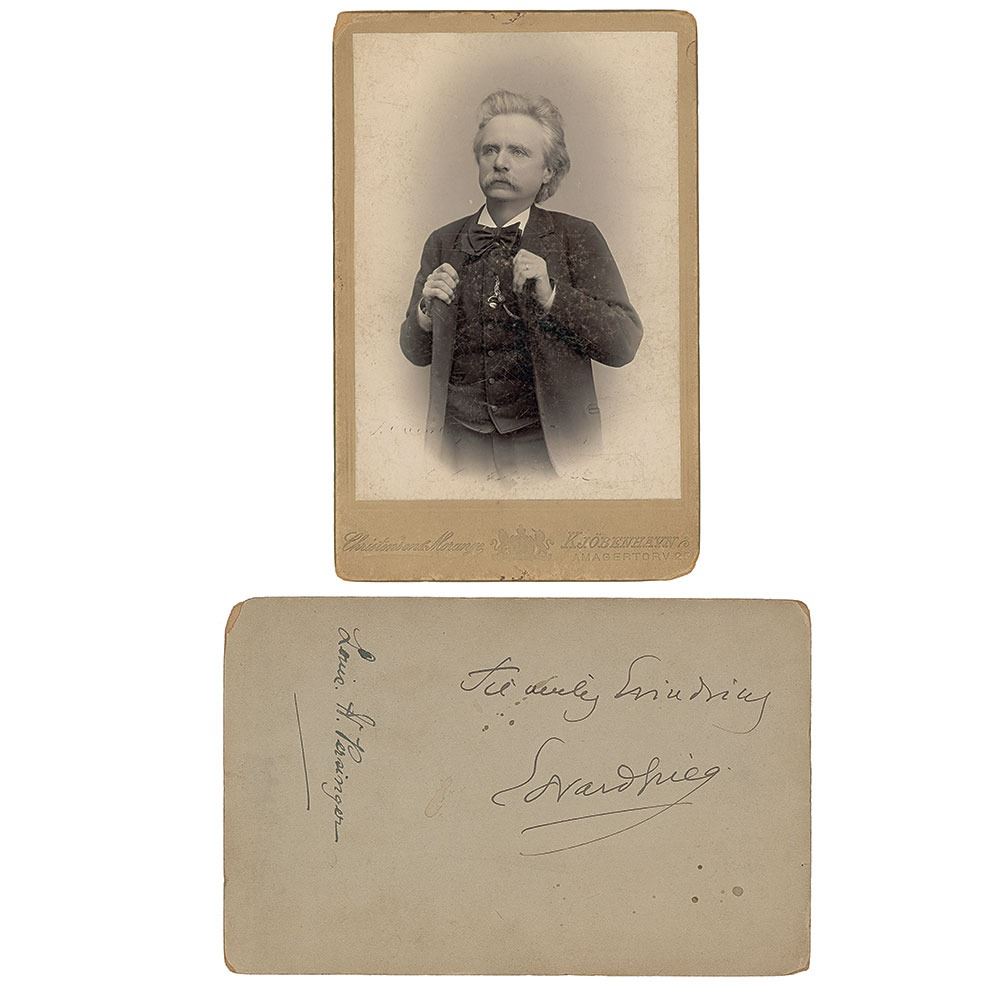 Christensen & Morange, KJÖBENHAVN
AMAGERTORV 25
Til venlig Erindring
Edvard Grieg.
Louis. H. Persinger